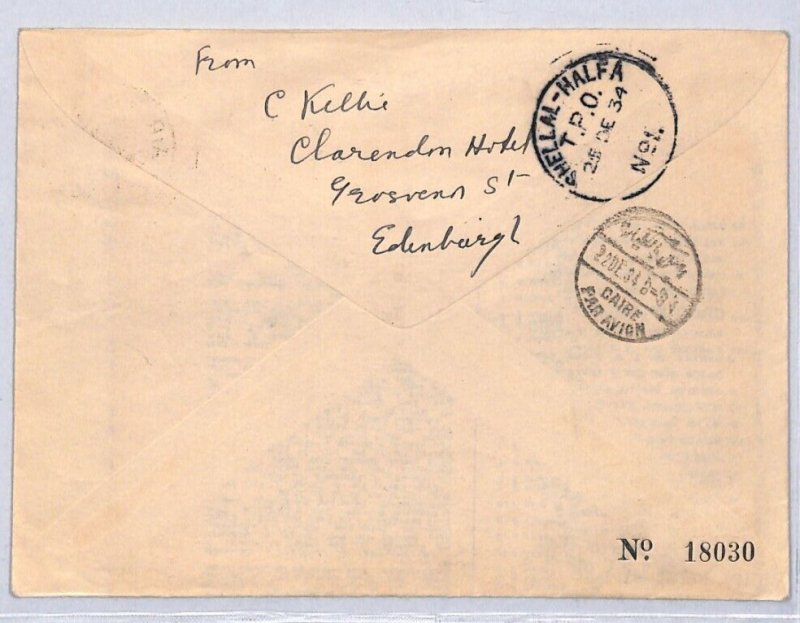 From
C Kellie
Clarendon Hotel
Grosvenor St
Edenburgh
SHELLAL-HALFA
T.P.O.
DE 34
No1.
DE 34
CAIRE
PAR AVION
No. 18030